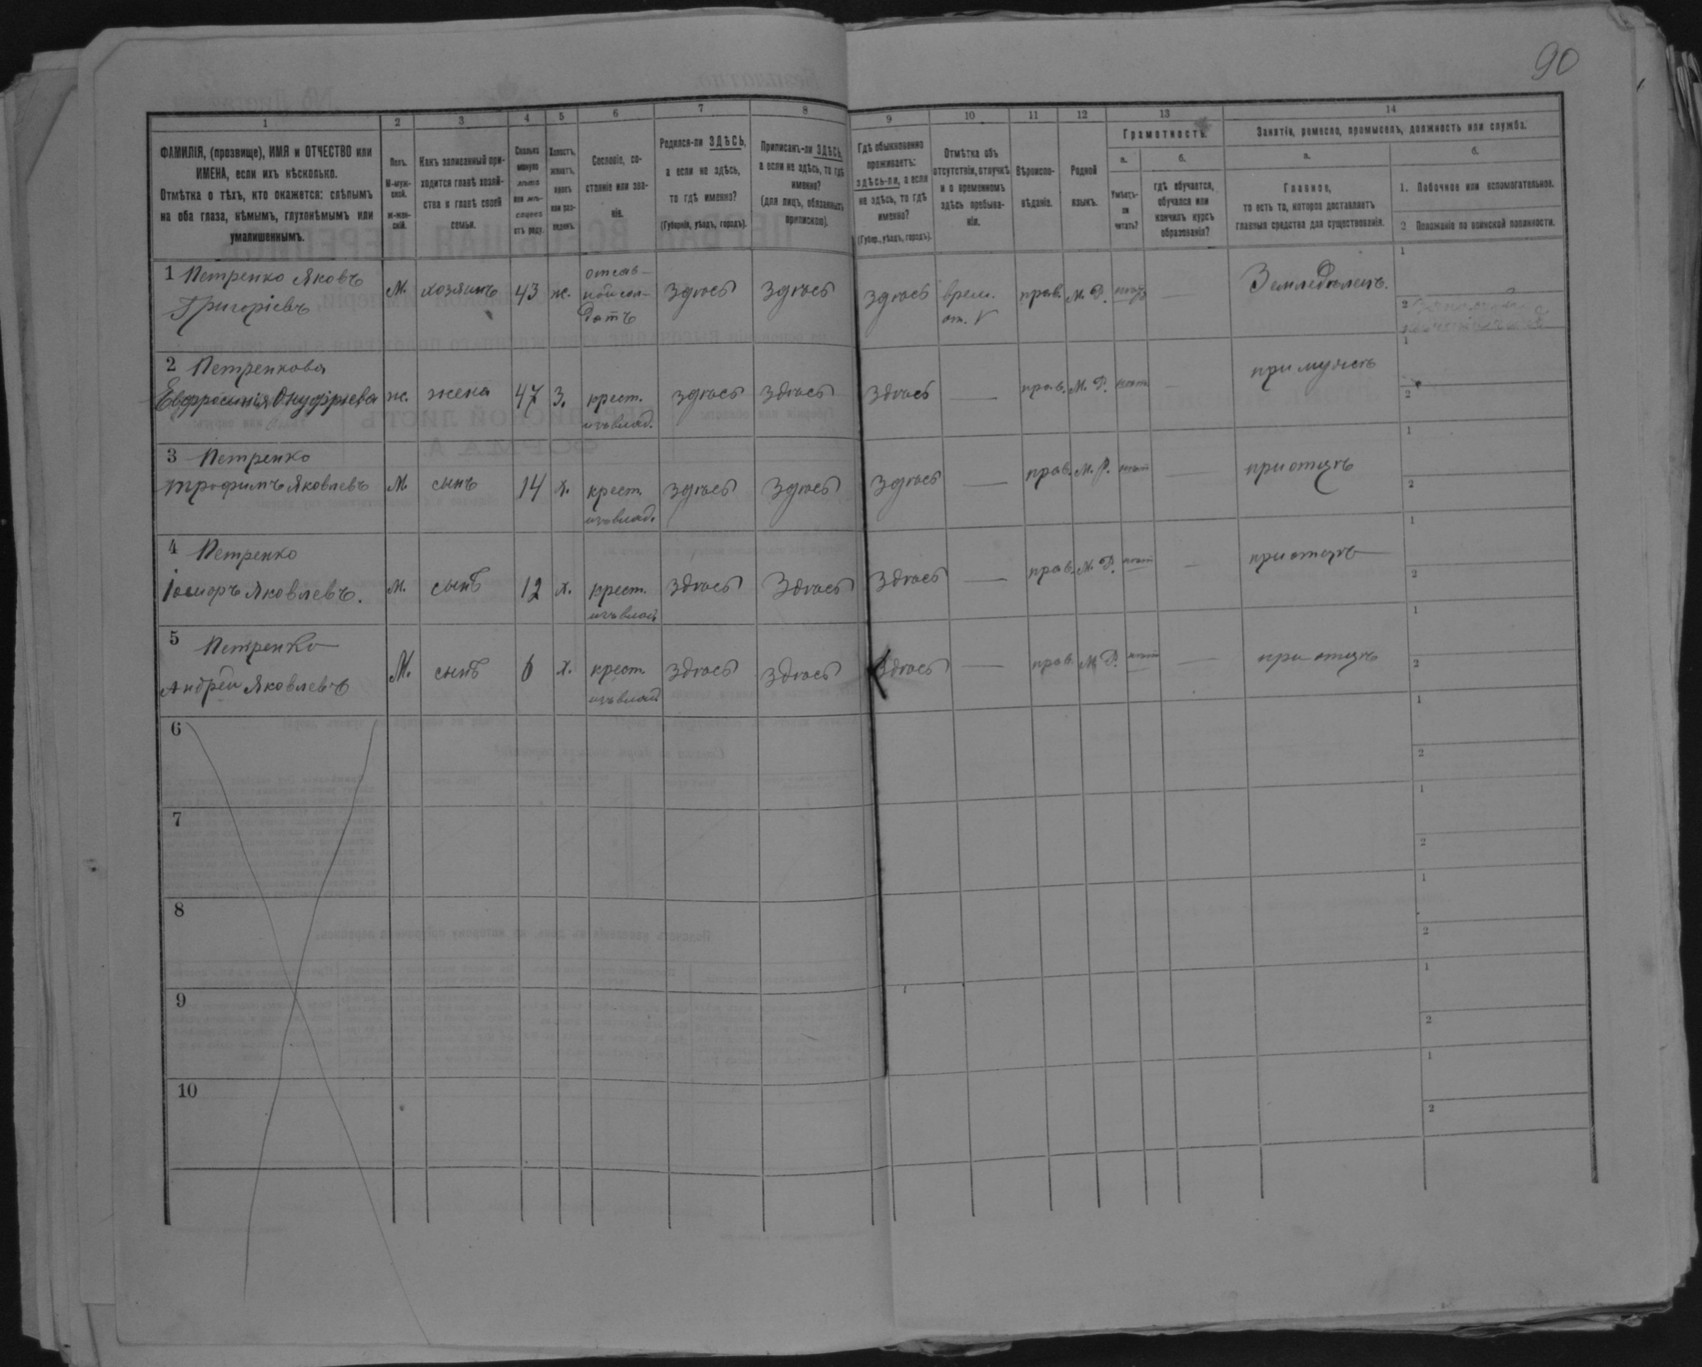 90
1 2 3 4 5 6 7 8 9 10 11 12 13 14
ФАМИЛІЯ, (прозвище), ИМЯ и ОТЧЕСТВО или
ИМЕНА, если ихъ нѣсколько.
Отмѣтка о тѣхъ, кто окажется: слѣпымъ
на оба глаза, нѣмымъ, глухонѣмымъ или
умалишеннымъ.
Полъ.
М-муж-
ской.
ж-жен-
скій.
Какъ записанный при-
ходится главѣ хозяй-
ства и главѣ своей
семьи.
Сколько
минуло
лѣтъ
или мѣ-
сяцевъ
отъ роду.
Холостъ,
женатъ,
вдовъ
или раз-
веденъ.
Сословіе, со-
стояніе или зва-
ніе.
Родился-ли ЗДѢСЬ,
а если не здѣсь,
то гдѣ именно?
(Губернія, уѣздъ, городъ).
Приписанъ-ли ЗДѢСЬ,
а если не здѣсь, то гдѣ
именно?
(для лицъ, обязанныхъ
припискою).
Гдѣ обыкновенно
проживаетъ:
здѣсь-ли, а если
не здѣсь, то гдѣ
именно?
(Губер., уѣздъ, городъ).
Отмѣтка объ
отсутствіи, отлучкѣ
и о временномъ
здѣсь пребыва-
ніи.
Вѣроиспо-
вѣданіе.
Родной
языкъ.
Грамотность.
а.
Умѣетъ-
ли
читать?
б.
гдѣ обучается,
обучался или
кончилъ курсъ
образованія?
Занятіе, ремесло, промыселъ, должность или служба.
а.
Главное,
то есть то, которое доставляетъ
главныя средства для существованія.
б.
1. Побочное или вспомогательное.
2 Положеніе по воинской повинности.
1 Петренко Яковъ
Григоріевъ
М. хозяинъ 43 ж. отстав-
ной сол-
датъ здѣсь здѣсь здѣсь врем.
от. V прав. М. Р. — Земледѣлецъ. 1
2
2 Петренкова
Евфросинія Онуфріева ж. жена 47 З. крест.
изъ влад. здѣсь здѣсь здѣсь — прав. М. Р. нѣтъ — при мужѣ 1
2
3 Петренко
Трофимъ Яковлевъ М. сынъ 14 х. крест.
изъ влад. здѣсь здѣсь здѣсь — прав. М. Р. нѣтъ — при отцѣ 1
2
4 Петренко
Яковлевъ. М. сынъ 12 х. крест.
изъ влад. здѣсь здѣсь здѣсь — прав. М. Р. нѣтъ — при отцѣ 1
2
5 Петренко
Андрей Яковлевъ М. сынъ 6 х. крест.
изъ влад. здѣсь здѣсь здѣсь — прав. М. Р. нѣтъ — при отцѣ 1
2
6 1
2
7 1
2
8 1
2
9 1
2
10 1
2